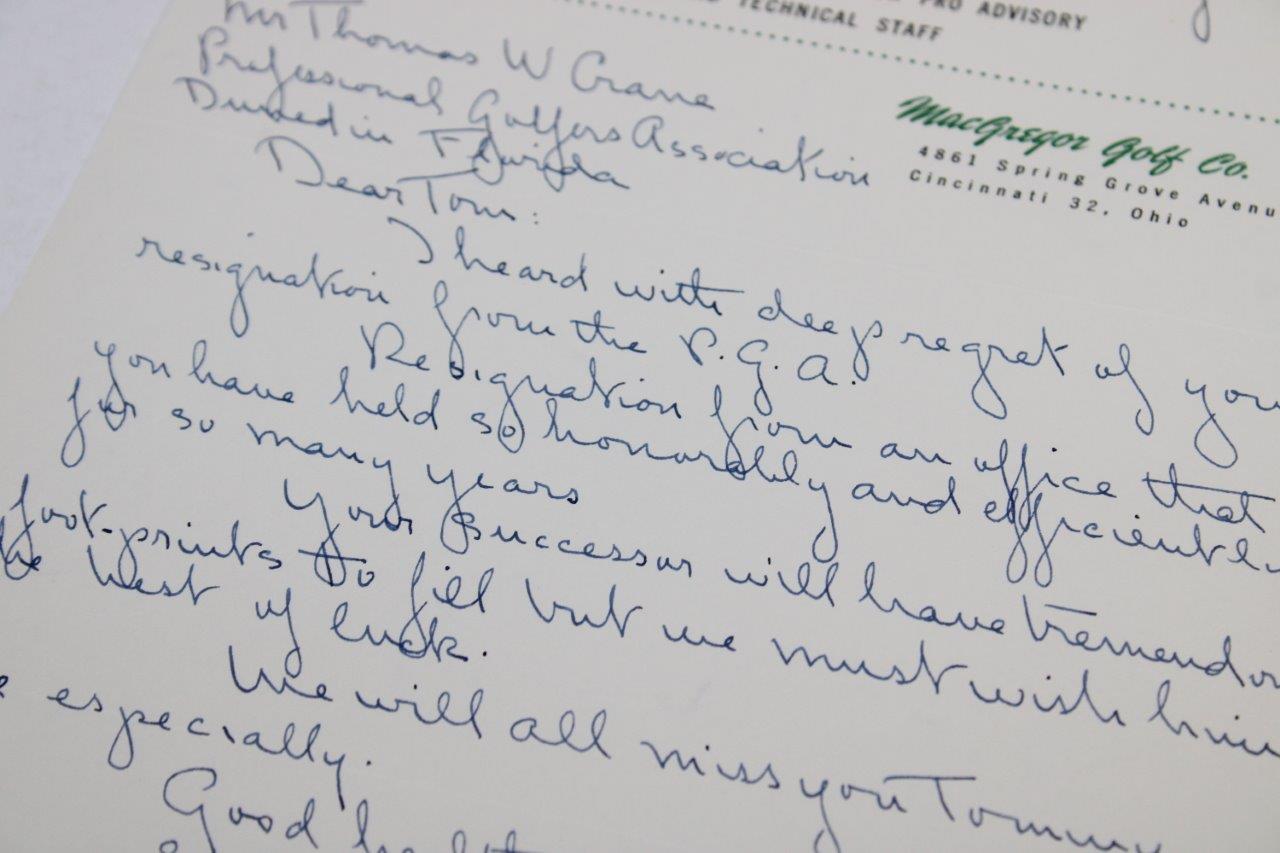 PRO ADVISORY
TECHNICAL STAFF
MacGregor Golf Co.
4861 Spring Grove Avenu
Cincinnati 32, Ohio
Mr Thomas W Crane
Professional Golfers Association
Dunedin Florida
Dear Tom:
I heard with deep regret of you
resignation from the P.G.A.
Resignation from an office that
you have held so honorably and efficiently
for so many years
Your successor will have tremendou
foot-prints to fill but we must wish him
he best of luck.
We will all miss you Tommy
especially.
Good